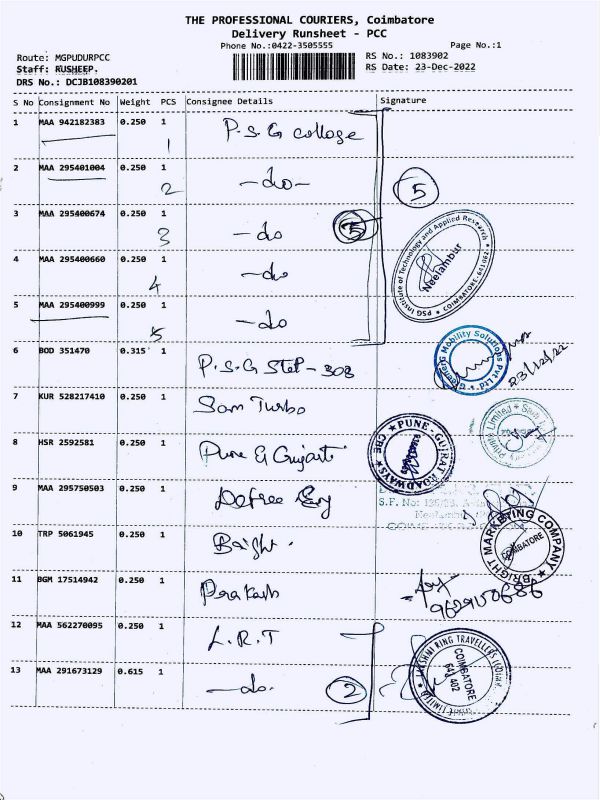 THE PROFESSIONAL COURIERS, Coimbatore
Delivery Runsheet - PCC
Phone No.:0422-3505555
Page No.:1
Route: MGPUDURPCC
RS No.: 1083902
Staff: RUSHEEP.
RS Date: 23-Dec-2022
DRS No.: DCJB108390201
S No Consignment No Weight PCS Consignee Details Signature
1 MAA 942182383 0.250 1 P.S.G College
1
2 MAA 295401004 0.250 1 -do-
2
5
3 MAA 295400674 0.250 1 -do
3
5
PSG Institute of Technology and Applied Research
Neelambur
COIMBATORE-641062
4 MAA 295400660 0.250 1 -do
4
5 MAA 295400999 0.250 1 -do
5
6 BOD 351470 0.315 1 P.S.G Step - 303
Mobility Solutions Pvt Ltd
23/12/22
7 KUR 528217410 0.250 1 Sam Turbo
Private Limited
8 HSR 2592581 0.250 1 Pune & Gujarti
PUNE-GUJRAT ROADWAYS
CBE
9 MAA 295750503 0.250 1
S.F. No:
10 TRP 5061945 0.250 1 Bright.
BRIGHT MARKETING COMPANY
COIMBATORE
11 BGM 17514942 0.250 1 Prakash
12 MAA 562270095 0.250 1 L.R.T
13 MAA 291673129 0.615 1 -do.
2
LAKSHMI RING TRAVELLERS
COIMBATORE
641 402